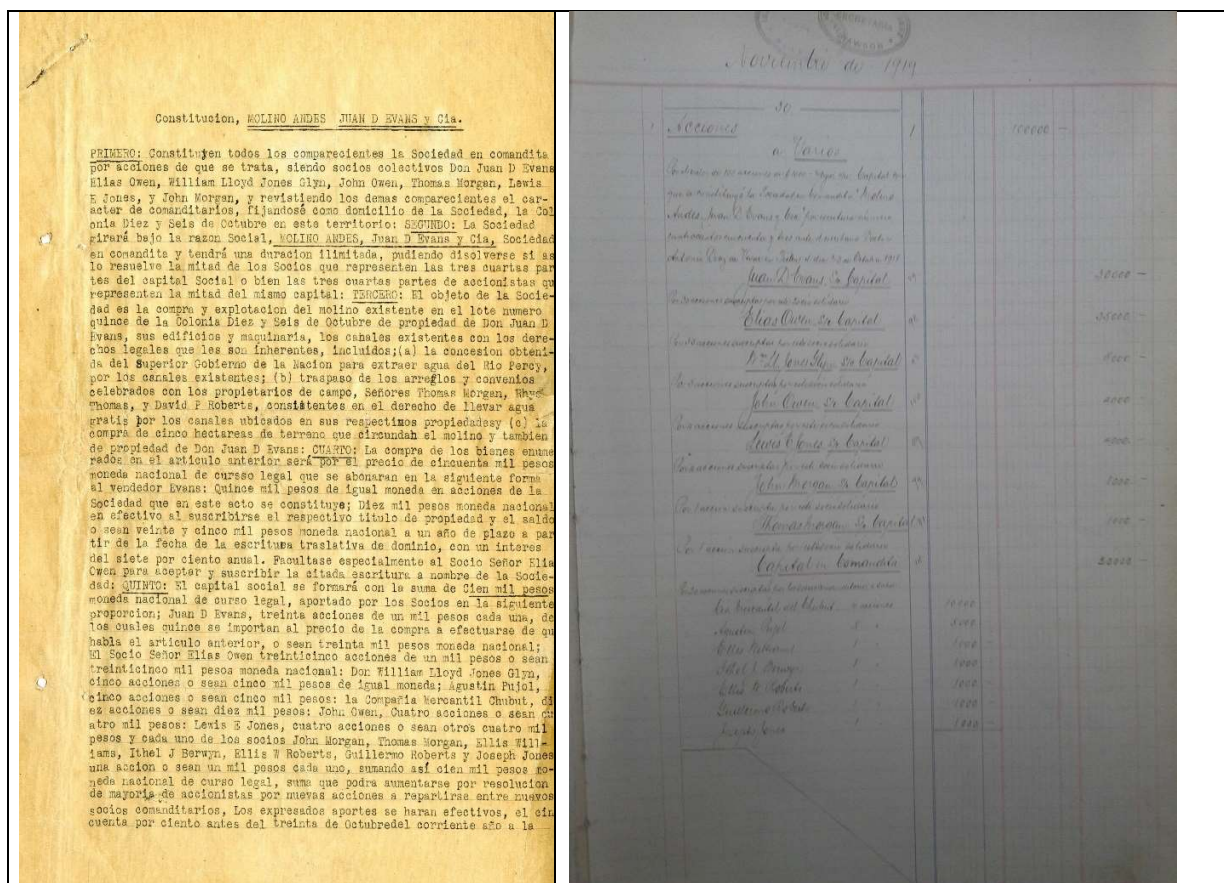 Constitucion, MOLINO ANDES JUAN D EVANS y Cia.
PRIMERO: Constituyen todos los comparecientes la Sociedad en comandita
por acciones de que se trata, siendo socios colectivos Don Juan D Evans
Elias Owen, William Lloyd Jones Glyn, John Owen, Thomas Morgan, Lewis
E Jones, y John Morgan, y revistiendo los demas comparecientes el car-
acter de comanditarios, fijandose como domicilio de la Sociedad, la Col
onia Diez y Seis de Octubre en este territorio: SEGUNDO: La Sociedad
girará bajo la razon Social, MOLINO ANDES, Juan D Evans y Cia, Sociedad
en comandita y tendrá una duracion ilimitada, pudiendo disolverse si as
lo resuelve la mitad de los Socios que representen las tres cuartas par
tes del capital Social o bien las tres cuartas partes de accionistas qu
representen la mitad del mismo capital: TERCERO: El objeto de la Socie-
dad es la compra y explotacion del molino existente en el lote numero
quince de la Colonia Diez y Seis de Octubre de propiedad de Don Juan D
Evans, sus edificios y maquinaria, los canales existentes con los dere-
chos legales que les son inherentes, incluidos;(a) la concesion obteni-
da del Superior Gobierno de la Nacion para extraer agua del Rio Percy,
por los canales existentes; (b) traspaso de los arreglos y convenios
celebrados con los propietarios de campo, Señores Thomas Morgan, Rhys
Thomas, y David P Roberts, consistentes en el derecho de llevar agua
gratis por los canales ubicados en sus respectinos propiedadesy (c) la
compra de cinco hectareas de terreno que circundah el molino y tambien
de propiedad de Don Juan D Evans: CUARTO: La compra de los bienes enume
rados en el articulo anterior será por el precio de cincuenta mil pesos
moneda nacional de cursso legal que se abonaran en la siguiente forma
al vendedor Evans: Quince mil pesos de igual moneda en acciones de la
Sociedad que en este acto se constituye; Diez mil pesos moneda nacional
en efectivo al suscribirse el respectivo titulo de propiedad y el saldo
o sean veinte y cinco mil pesos moneda nacional a un año de plazo a par
tir de la fecha de la escritura traslativa de dominio, con un interes
del siete por ciento anual. Facultase especialmente al Socio Señor Elia
Owen para aceptar y suscribir la citada escritura a nombre de la Socie-
dad: QUINTO: El capital social se formará con la suma de Cien mil pesos
moneda nacional de curso legal, aportado por los Socios en la siguiente
proporcion; Juan D Evans, treinta acciones de un mil pesos cada una, de
los cuales quince se importan al precio de la compra a efectuarse de qu
habla el articulo anterior, o sean treinta mil pesos moneda nacional;
El Socio Señor Elias Owen treinticinco acciones de un mil pesos o sean
treinticinco mil pesos moneda nacional: Don William Lloyd Jones Glyn,
cinco acciones o sean cinco mil pesos de igual moneda; Agustin Pujol,
cinco acciones o sean cinco mil pesos: la Compañia Mercantil Chubut, di
ez acciones o sean diez mil pesos: John Owen, Cuatro acciones o sean cu
atro mil pesos: Lewis E Jones, cuatro acciones o sean otros cuatro mil
pesos y cada uno de los socios John Morgan, Thomas Morgan, Ellis Will-
iams, Ithel J Berwyn, Ellis W Roberts, Guillermo Roberts y Joseph Jones
una accion o sean un mil pesos cada uno, sumando así cien mil pesos mo-
neda nacional de curso legal, suma que podra aumentarse por resolucion
de mayoria de accionistas por nuevas acciones a repartirse entre nuevos
socios comanditarios, Los expresados aportes se haran efectivos, el cin
cuenta por ciento antes del treinta de Octubredel corriente año a la
Noviembre de 1919
30
Acciones 1 100000
a Varios
Juan D Evans Su Capital 30000
Elias Owen Su Capital 35000
Wm Ll. Jones Glyn Su Capital 5000
John Owen Su Capital 4000
Lewis E Jones Su Capital 4000
John Morgan Su Capital 1000
Thomas Morgan Su Capital 1000
Capital en Comandita 20000
Cia Mercantil del Chubut 10000
Agustin Pujol 5000
Ellis Williams 1000
Ithel J. Berwyn 1000
Ellis W. Roberts 1000
Guillermo Roberts 1000
Joseph Jones 1000